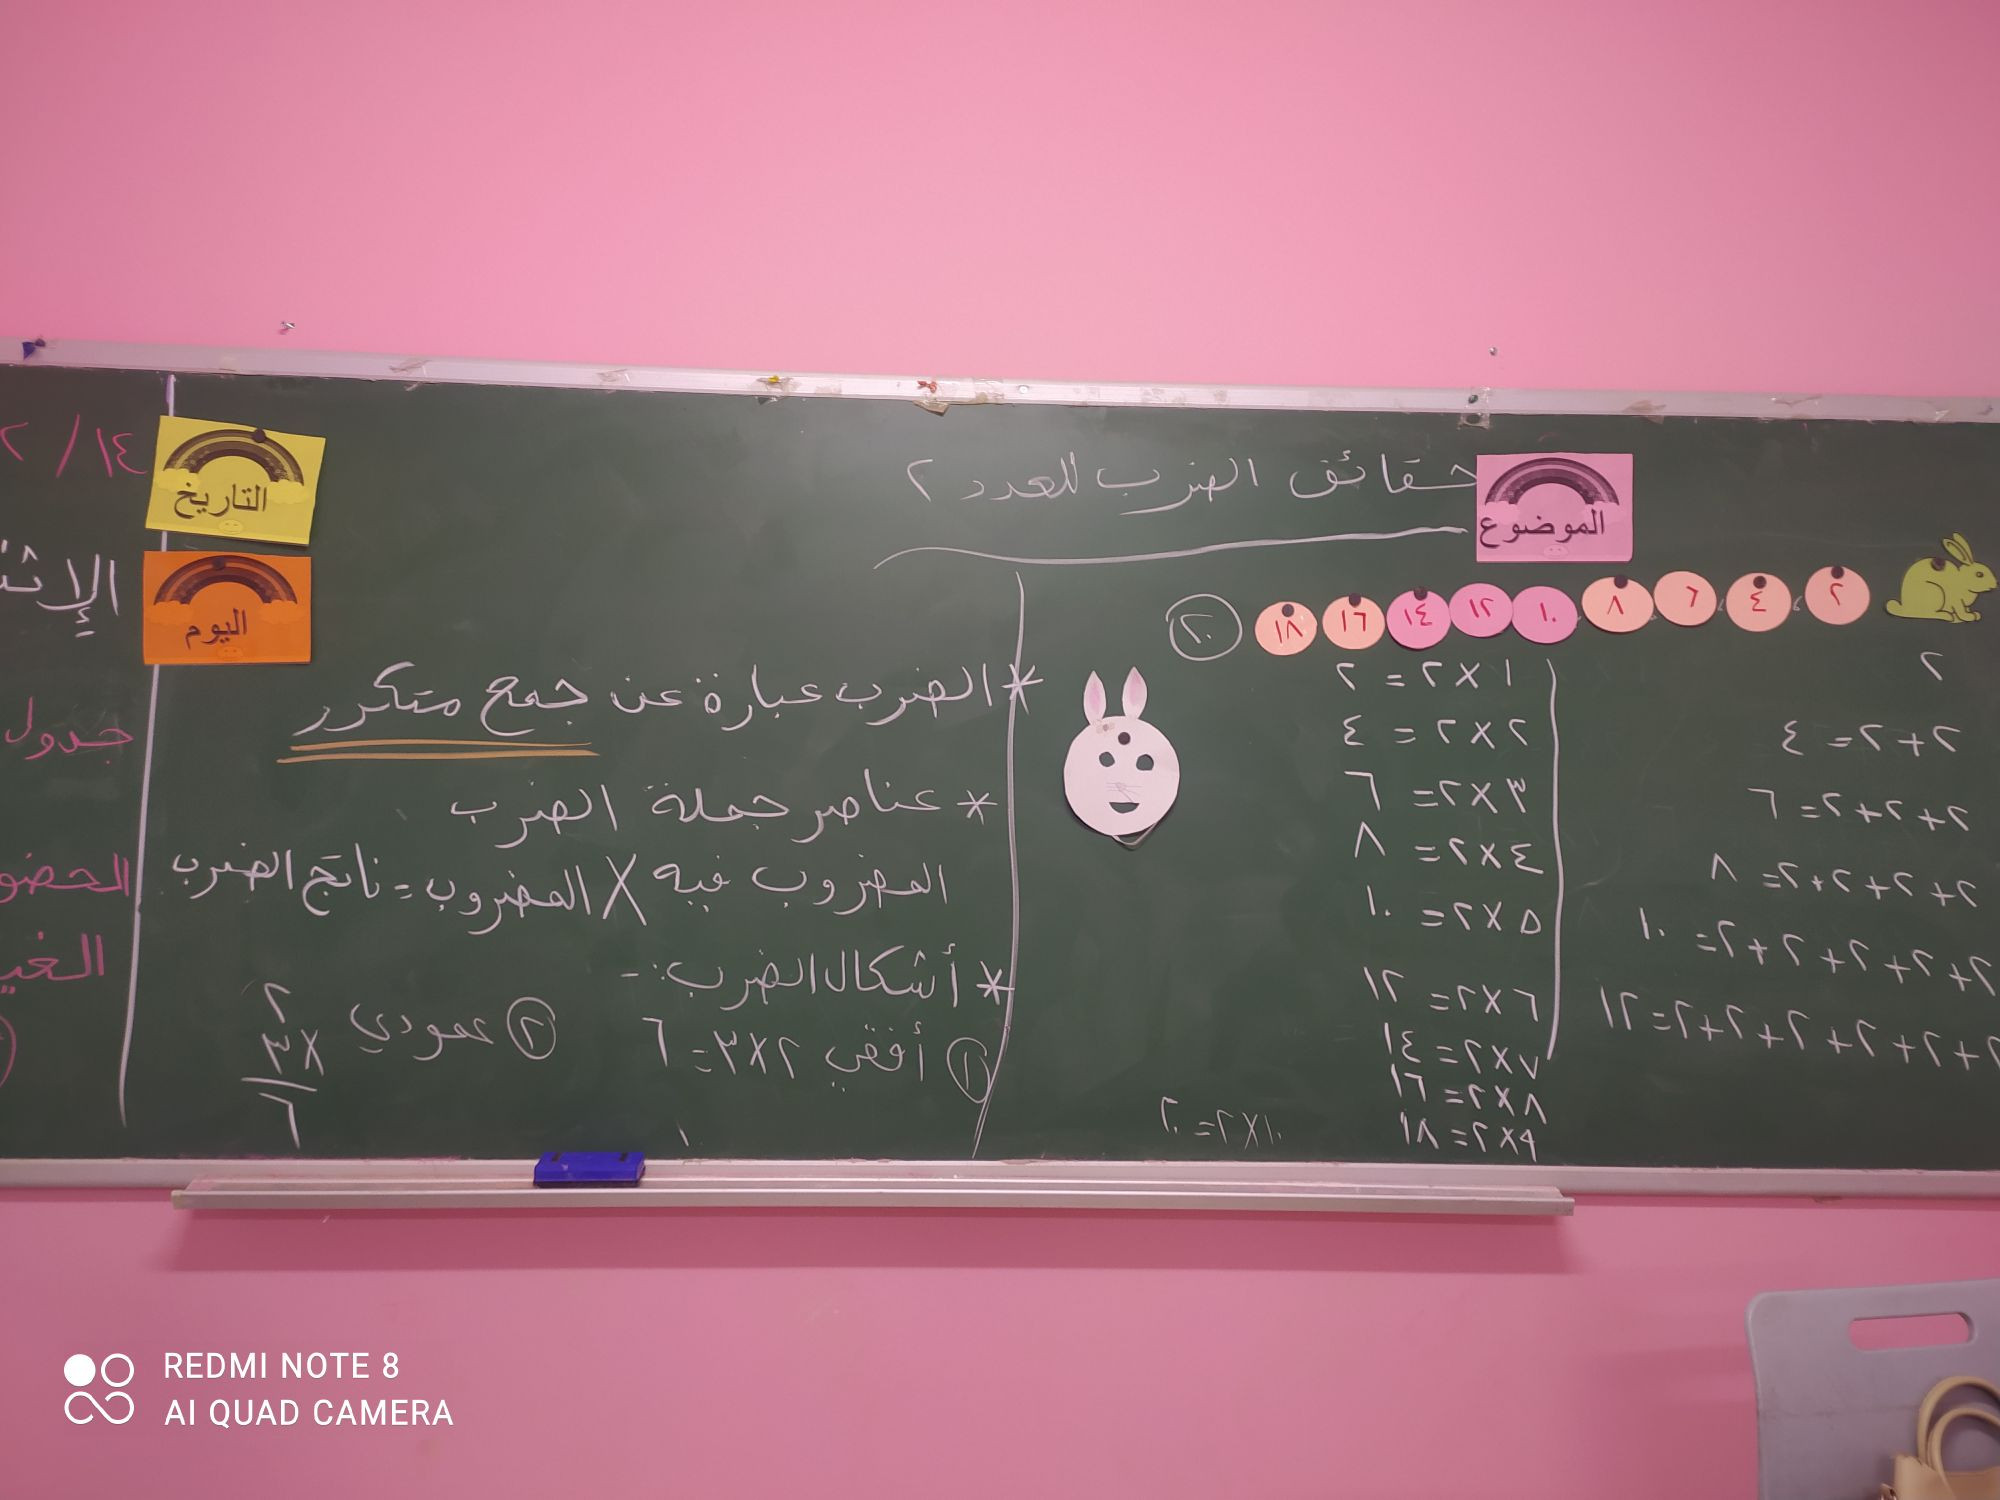 الموضوع
حقائق الضرب للعدد ٢
٢ ، ٤ ، ٦ ٨ ١٠ ١٢ ١٤ ١٦ ١٨ ٢٠
٢
٢+٢=٤
٢+٢+٢=٦
٢+٢+٢+٢=٨
٢+٢+٢+٢+٢=١٠
٢+٢+٢+٢+٢+٢=١٢
١×٢=٢
٢×٢=٤
٣×٢=٦
٤×٢=٨
٥×٢=١٠
٦×٢=١٢
٧×٢=١٤
٨×٢=١٦
٩×٢=١٨
١٠×٢=٢٠
* الضرب عبارة عن جمع متكرر
* عناصر جملة الضرب
المضروب فيه × المضروب = ناتج الضرب
* أشكال الضرب:-
① أفقي ٢×٣=٦
② عمودي
٢
×٣
٦
التاريخ
١٤/٢
اليوم
جدول
REDMI NOTE 8
AI QUAD CAMERA